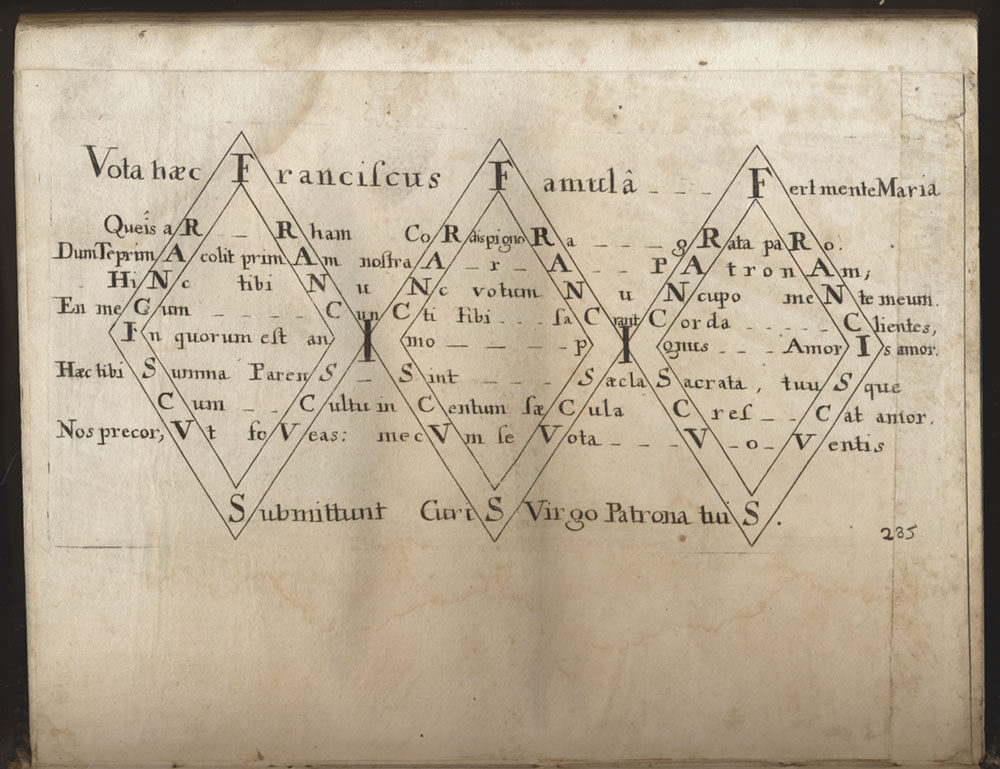 Vota hæc Franciſcus Famulâ _ _ _ Fert mente Maria
Queîs a R _ _ Rham CoRdis pignoRa _ _ _ _ gRata paRo.
Dum Te prim A colit prim Am noſtra A _ r _ A _ _ _ PAtronAm;
Hi Nc tibi Nu Nc votum Nu Ncupo me Nte meum.
En me Cum _ _ _ _ Cun Cti tibi _ _ ſa Crant Corda _ _ _ _ Clientes,
In quorum eſt an I mo _ _ _ _ p I gnus _ _ _ Amor Is amor.
Hæc tibi Summa Parens _ Sint _ _ _ Sæcla Sacrata, tuuSque
Cum _ _ Cultu in Centum ſæCula Creſ _ _ Cat amor.
Nos precor, Vt foVeas: mecVm ſe Vota _ _ _ _ V _ o _ Ventis
Submittunt CuriS Virgo Patrona tuiS.
235